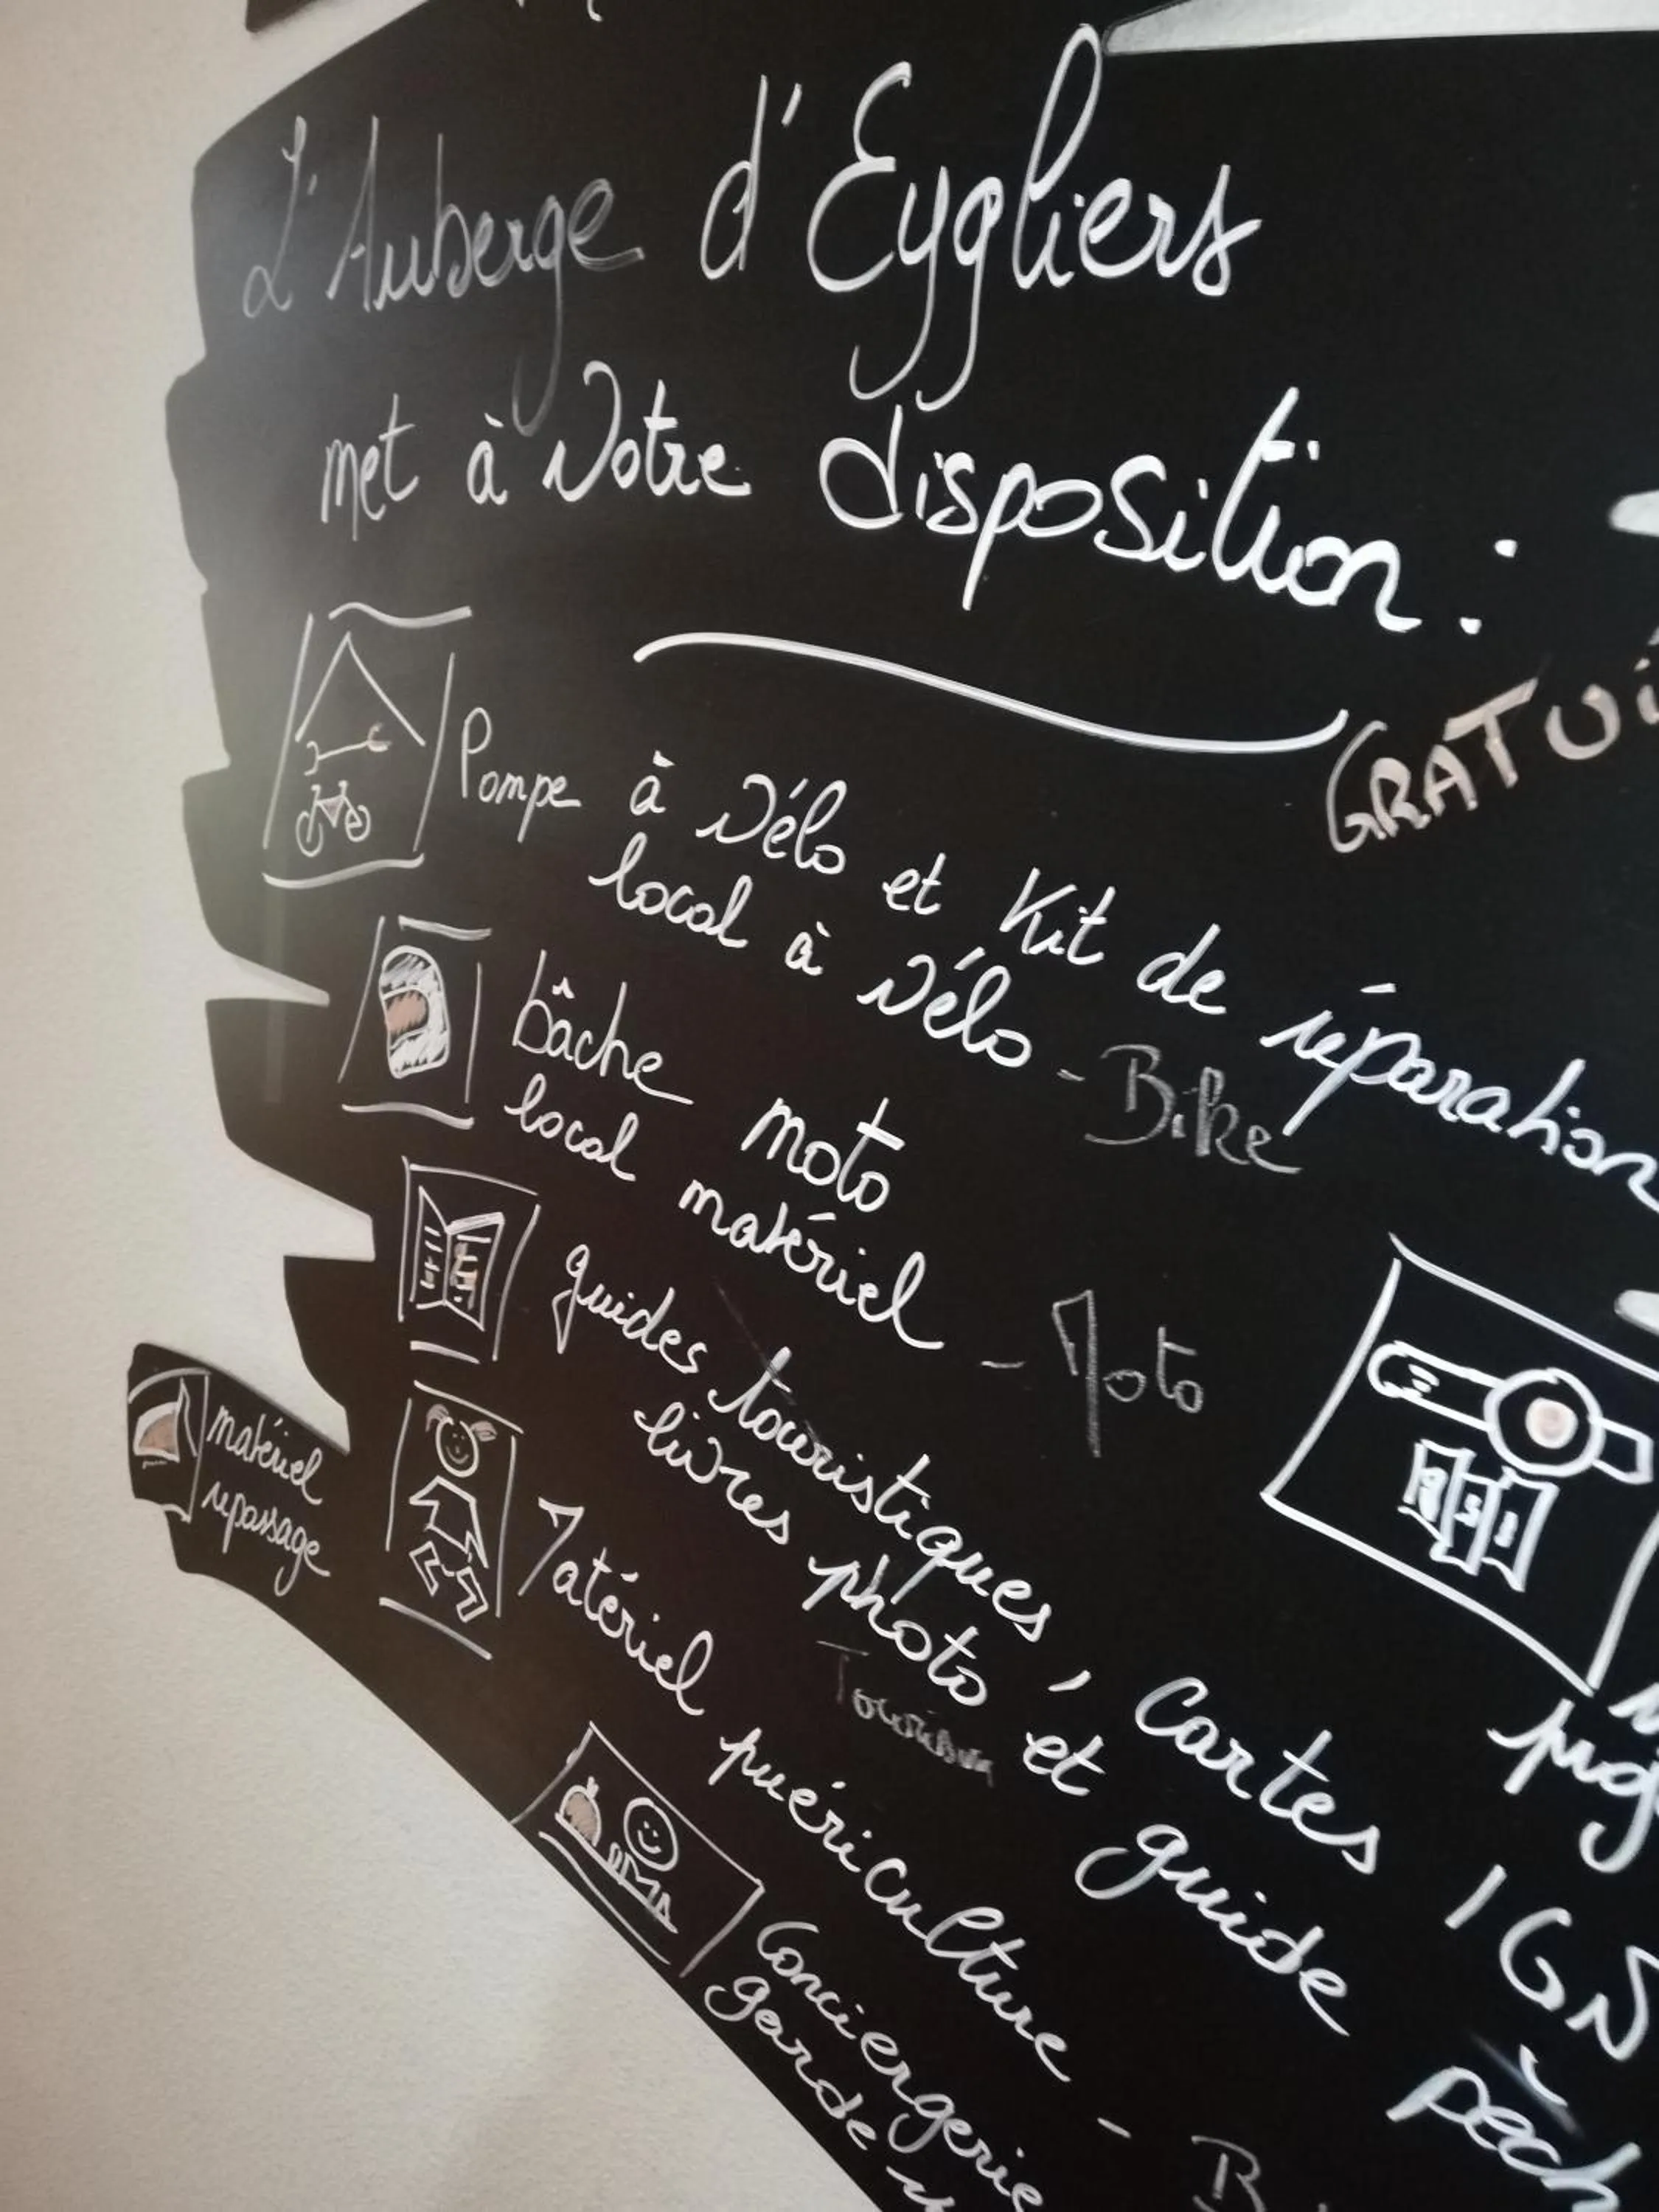 L'Auberge d'Eygliers
met à Votre disposition :
GRATUI
Pompe à Vélo et Kit de réparation
local à Vélo - Bike
bâche moto
local matériel - Moto
guides touristiques, Cartes IGN
livres photo et guide pêch
matériel
repassage
Matériel puériculture - B
Conciergerie
garde